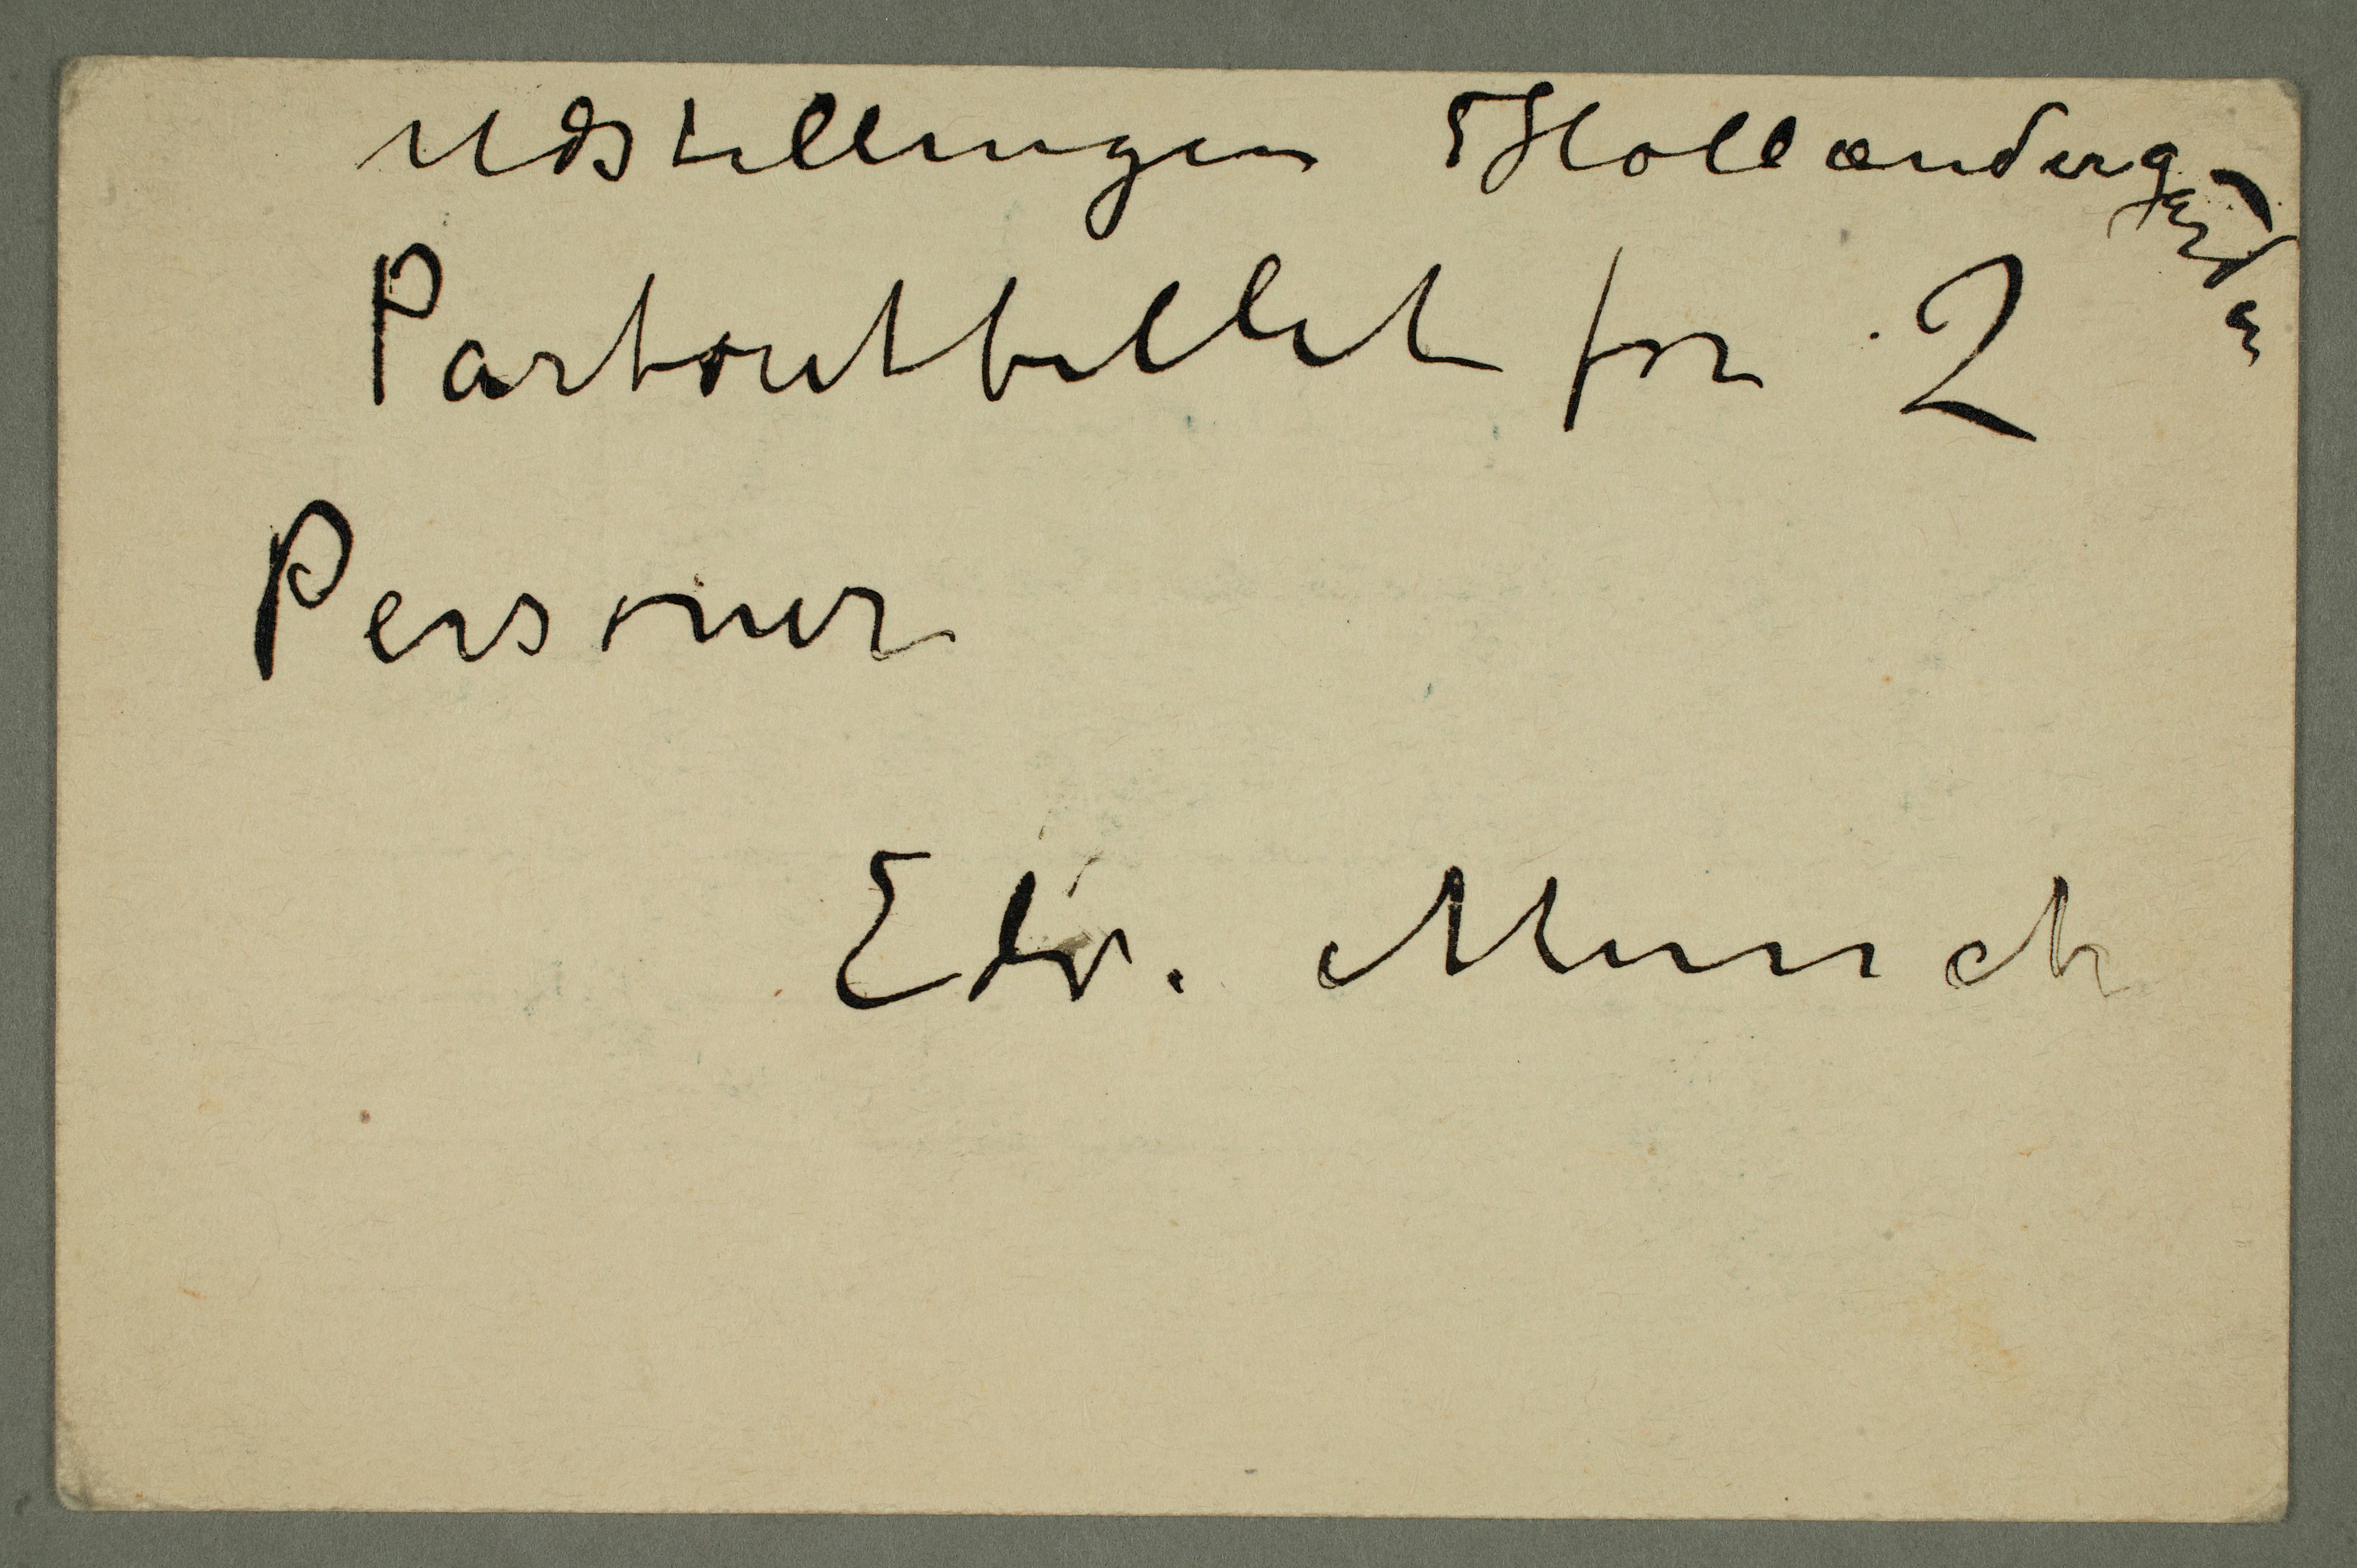 Udstillingen Hollændergaarden
Partoutbillet for 2
Personer
Edv. Munch